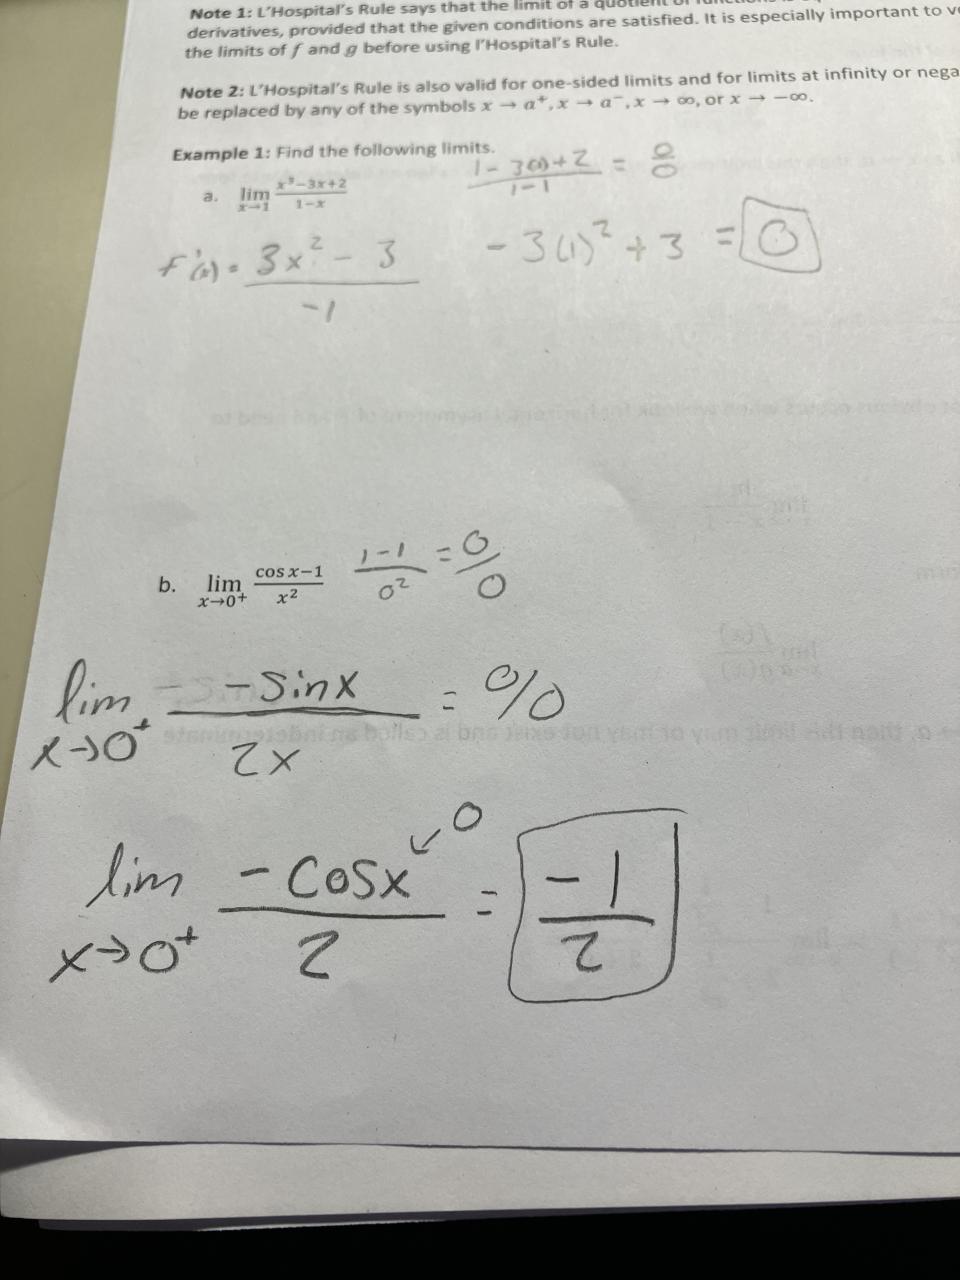 Note 1: L'Hospital's Rule says that the limit of a quotient of
derivatives, provided that the given conditions are satisfied. It is especially important to
the limits of f and g before using l'Hospital's Rule.
Note 2: L'Hospital's Rule is also valid for one-sided limits and for limits at infinity or nega
be replaced by any of the symbols x → a⁺, x → a⁻, x → ∞, or x → −∞.
Example 1: Find the following limits.
a. lim x→1 (x³−3x+2)/(1−x)
(1 - 3(1) + 2)/(1-1) = 0/0
F'(x) = (3x² - 3)/(-1)
- 3(1)² + 3 = 0
b. lim x→0+ (cos x−1)/x²
(1-1)/0² = 0/0
lim x→0⁺ (-sinx)/(2x) = 0/0
lim x→0⁺ (-cosx)/2 = -1/2
0